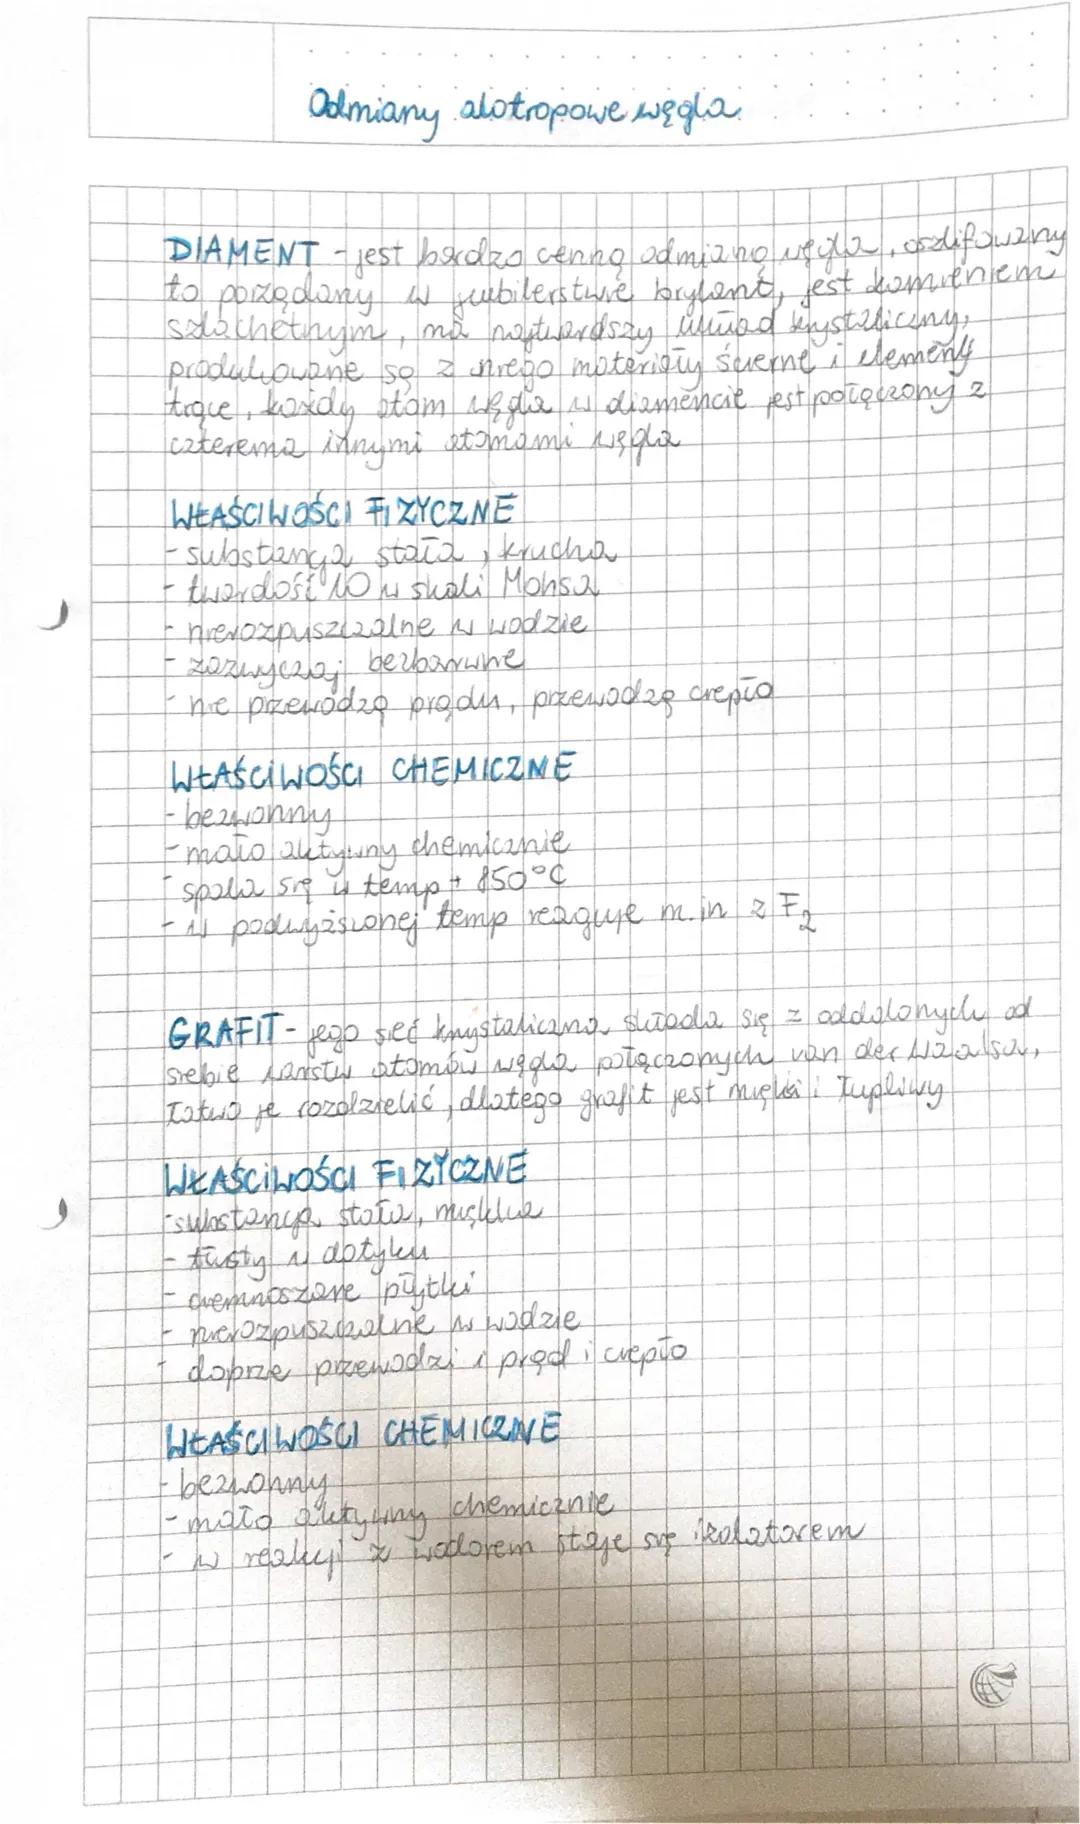 Odmiany alotropowe węgla
DIAMENT - jest bardzo cenną odmianą węgla, oszlifowany
to pożądany w jubilerstwie brylant, jest kamieniem
szlachetnym, ma najtwardszy układ krystaliczny,
produkowane są z niego materiały ścierne i elementy
trące, każdy atom węgla w diamencie jest połączony z
czterema innymi atomami węgla
WŁAŚCIWOŚCI FIZYCZNE
- substancja stała, krucha
- twardość 10 w skali Mohsa
- nierozpuszczalne w wodzie
- zazwyczaj bezbarwne
- nie przewodzą prądu, przewodzą ciepło
WŁAŚCIWOŚCI CHEMICZNE
- bezwonny
- mało aktywny chemicznie
- spala się w temp + 850°C
- w podwyższonej temp reaguje m.in z F2
GRAFIT - jego sieć krystaliczna składa się z oddalonych od
siebie warstw atomów węgla połączonych van der Waalsa,
łatwo je rozdzielić, dlatego grafit jest miękki i łupliwy
WŁAŚCIWOŚCI FIZYCZNE
- substancja stała, miękka
- tłusty w dotyku
- ciemnoszare płytki
- nierozpuszczalne w wodzie
- dobrze przewodzi i prąd i ciepło
WŁAŚCIWOŚCI CHEMICZNE
- bezwonny
- mało aktywny chemicznie
- w reakcji z wodorem staje się izolatorem